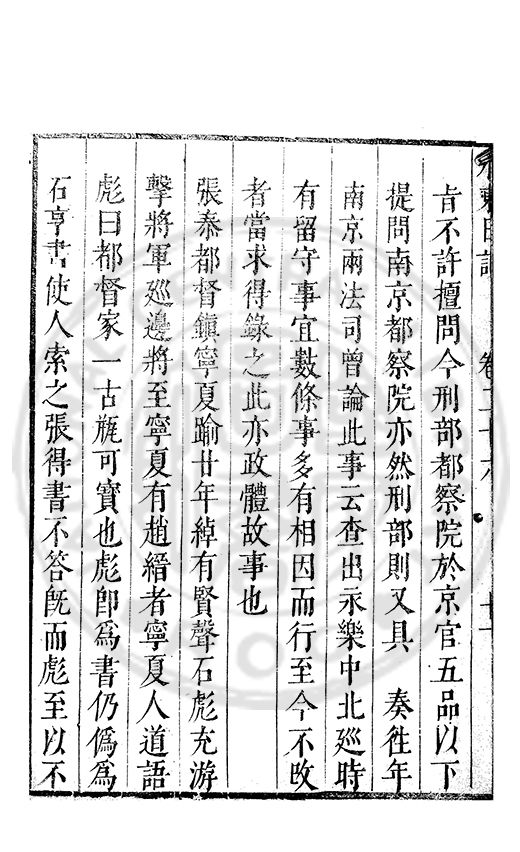 水東日記　卷二十六　十一
肯不許擅問今刑部都察院於京官五品以下
提問南京都察院亦然刑部則又具　奏徃年
南京兩法司曾論此事云查出永樂中北廵時
有留守事宜數條事多有相因而行至今不攺
者當求得錄之此亦政體故事也
張泰都督鎮寧夏踰廿年綽有賢聲石彪充游
擊將軍廵邊將至寧夏有趙縉者寧夏人道語
彪曰都督家一古瓶可寳也彪卽爲書仍僞爲
石亨書使人索之張得書不答旣而彪至以不